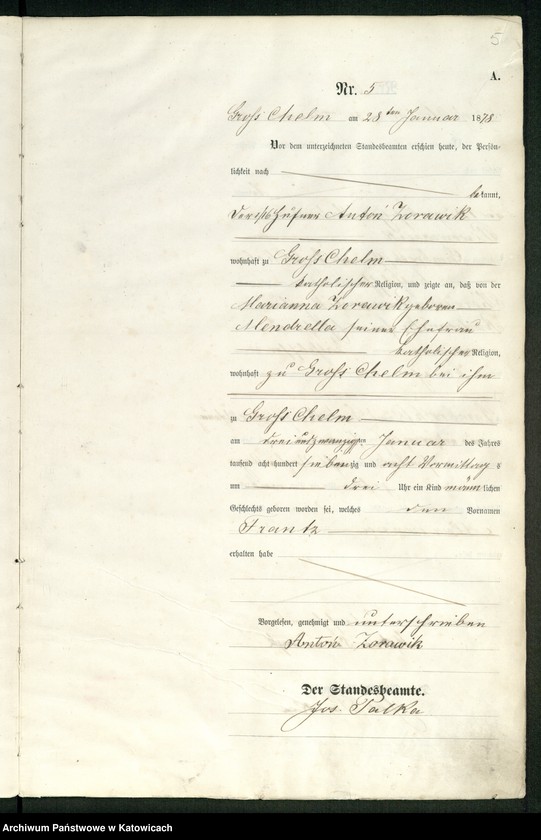 5
A.
Nr. 5
Groß Chelm am 28ten Januar 1878
Vor dem unterzeichneten Standesbeamten erschien heute, der Persön-
lichkeit nach
bekannt,
Anton Zorawik
wohnhaft zu Groß Chelm
katholischer Religion, und zeigte an, daß von der
Marianna Zorawik geboren
Mendrella seiner Ehefrau
katholischer Religion,
wohnhaft zu Groß Chelm bei ihm
zu Groß Chelm
am dreiundzwanzigsten Januar des Jahres
tausend acht hundert siebenzig und acht Vormittags
um drei Uhr ein Kind männlichen
Geschlechts geboren worden sei, welches den Vornamen
Frantz
erhalten habe
Vorgelesen, genehmigt und unterschrieben
Anton Zorawik
Der Standesbeamte.
Jos. Palka
Archiwum Państwowe w Katowicach